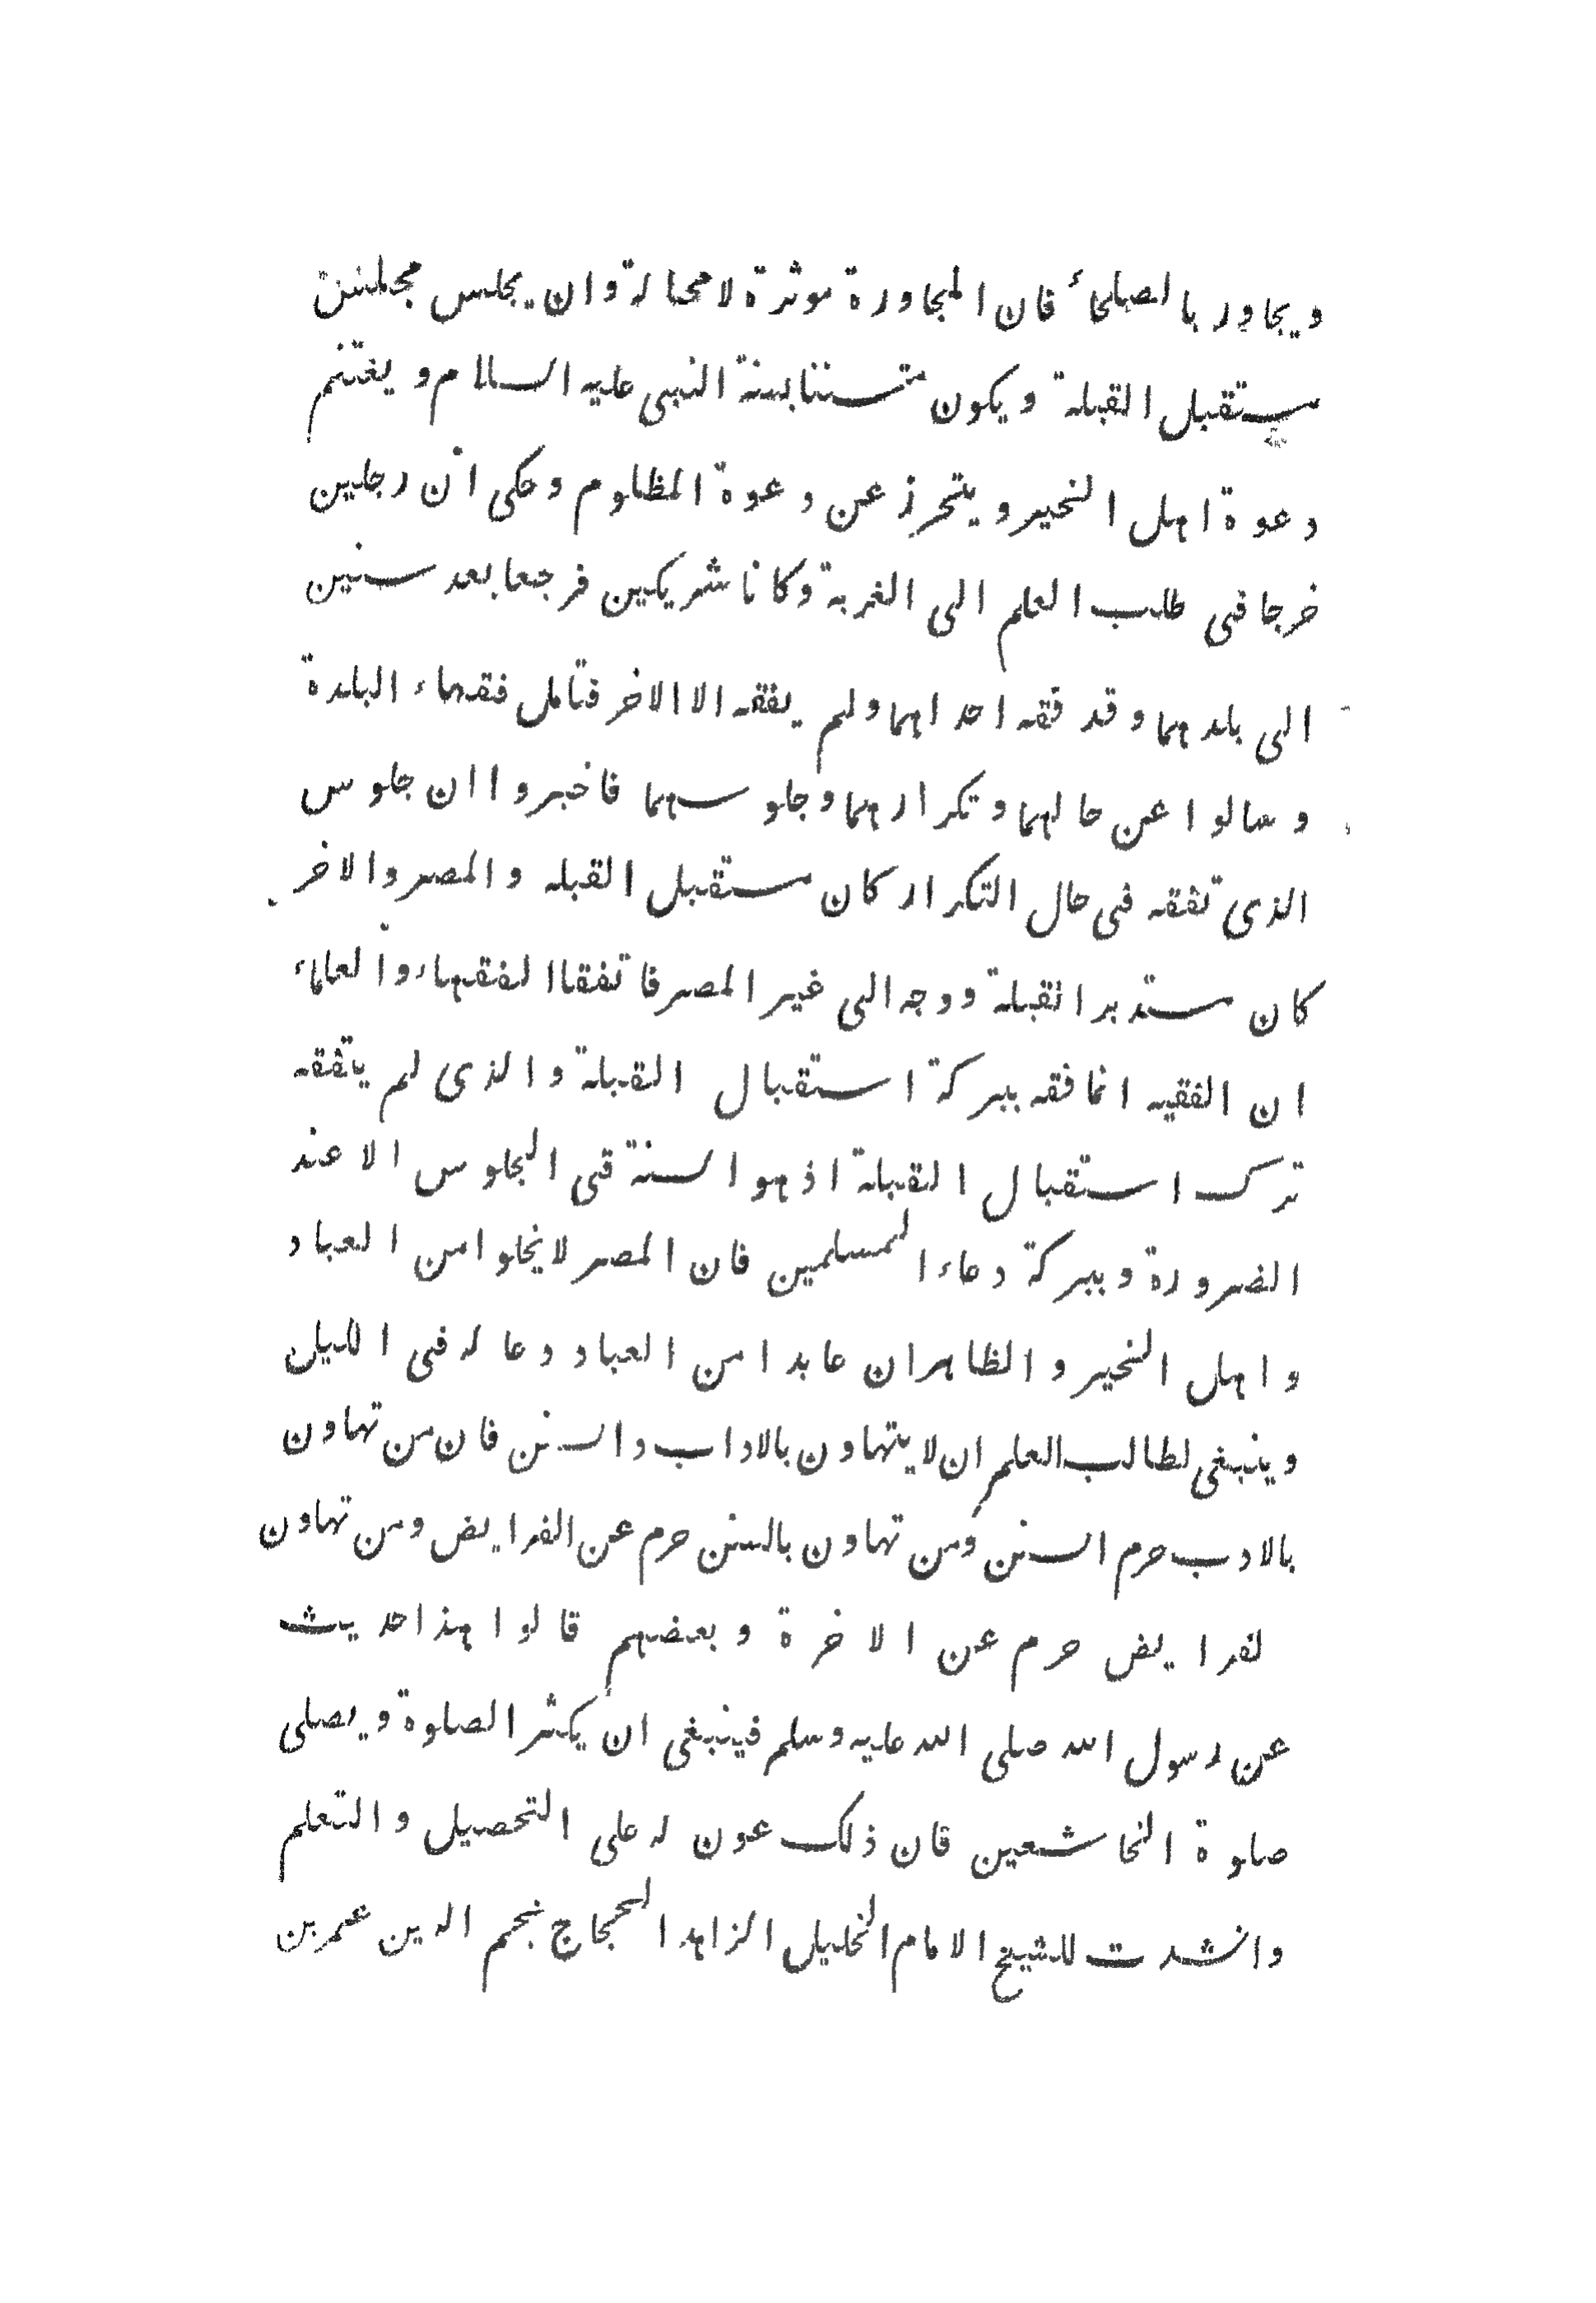 ويجاور بالصلحاء فان المجاورة موثرة لا محالة وان يجلس مجلسن
مستقبل القبلة ويكون متسننا بسنة النبى عليه السلام و يغتنم
دعوة اهل الخير و يتحرز عن دعوة المظلوم وحكى ان رجلين
خرجا فى طلب العلم الى الغربة وكانا شريكين فرجعا بعد سنين
الى بلدهما وقد فقه احداهما ولم يفقه الا الاخر فتامل فقهاء البلدة
و سالوا عن حالهما و تكرارهما وجلوسهما فاخبروا ان جلوس
الذى تفقه فى حال التكرار كان مستقبل القبله والمصر والاخر
كان مستدبر القبلة ووجه الى غير المصر فاتفقا الفقهاء والعلماء
ان الفقيه انما فقه ببركة استقبال القبلة والذى لم يتفقه
ترك استقبال القبلة اذ هو السنة فى الجلوس الا عند
الضرورة وببركة دعاء المسلمين فان المصر لا يخلوا من العباد
واهل الخير والظاهر ان عابدا من العباد دعا له فى الليل
وينبغى لطالب العلم ان لا يتهاون بالاداب والسنن فان من تهاون
بالادب حرم السنن ومن تهاون بالسنن حرم عن الفرايض ومن تهاون
لفرايض حرم عن الاخرة وبعضهم قالوا هذا حديث
عن رسول الله صلى الله عليه وسلم فينبغى ان يكثر الصلوة ويصلى
صلوة الخاشعين فان ذلك عون له على التحصيل والتعلم
وانشدت للشيخ الامام الخليل الزاهد الحجاج نجم الدين عمر بن